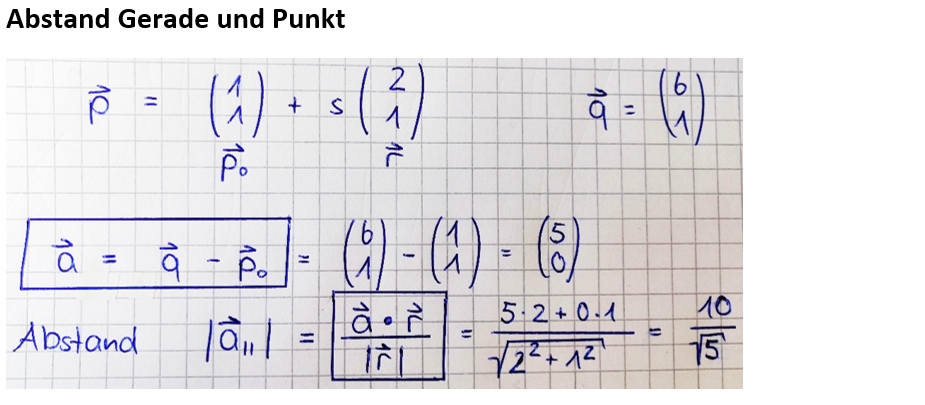 Abstand Gerade und Punkt
p⃗ = (1 1) + s (2 1) q⃗ = (6 1)
p⃗₀ r⃗
a⃗ = q⃗ - p⃗₀ = (6 1) - (1 1) = (5 0)
Abstand |a⃗₁₁| = a⃗ • r⃗ / |r⃗| = 5·2 + 0·1 / √2² + 1² = 10 / √5